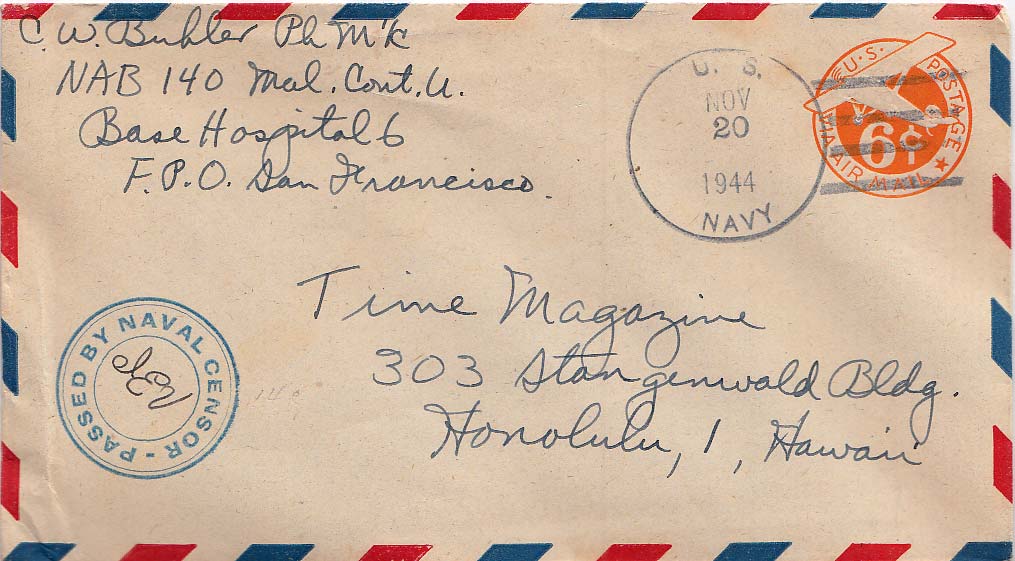 C. W. Buhler Ph M 1/c
NAB 140 Mal. Cont. U.
Base Hospital 6
F. P. O. San Francisco.
U. S.
NOV
20
1944
NAVY
U.S. POSTAGE
6¢
VIA AIR MAIL
Time Magazine
303 Stangenwald Bldg.
Honolulu, 1, Hawaii
PASSED BY NAVAL CENSOR -